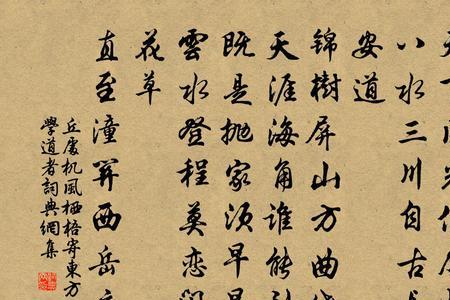 天下光
八水三川自古
安道
錦樹屏山方曲
天涯海角誰能
既是拋家須早早
雲水登程莫戀
花草
直至潼関西岳
丘處机風栖梧寄東方
學道者詞典網集